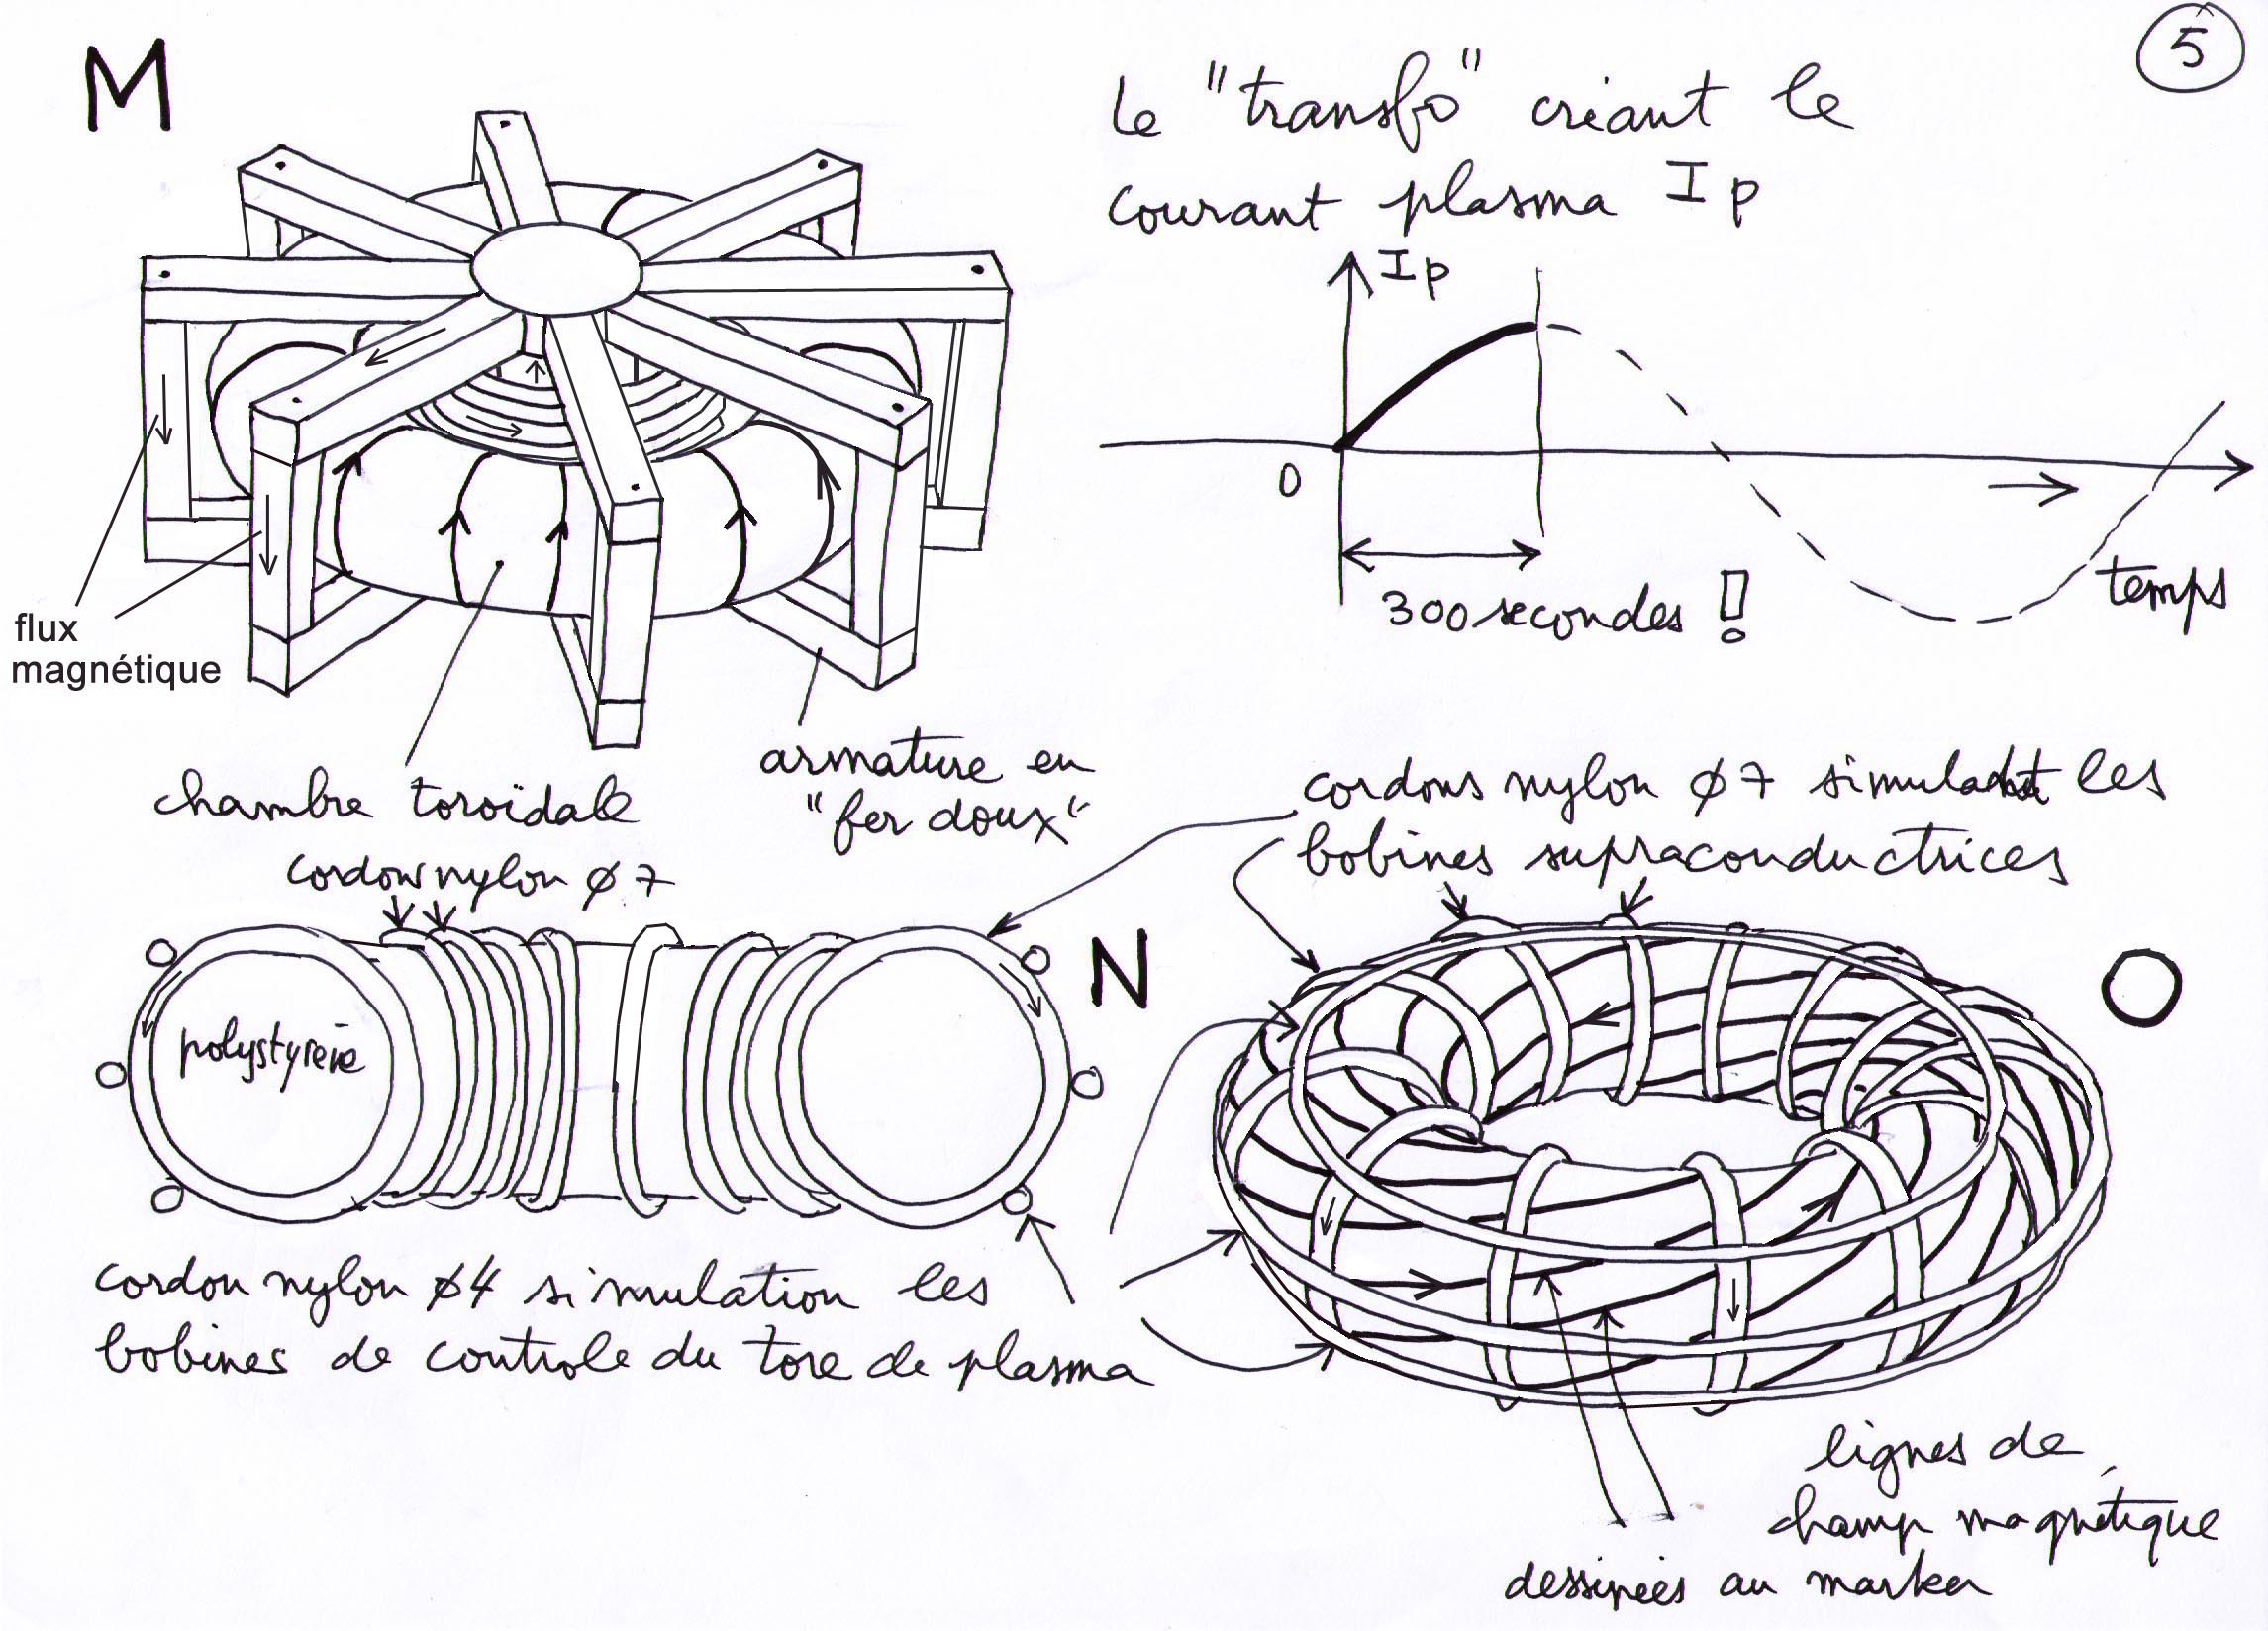 M
5
Le "transfo" créant le
courant plasma Ip
Ip
0
300 secondes !
temps
flux
magnétique
chambre toroïdale
armature en
"fer doux"
cordons nylon ø 7
cordons nylon ø 7 simulant les
bobines supraconductrices
polystyrène
N
O
cordon nylon ø4 simulation les
bobines de controle du tore de plasma
lignes de
champ magnétique
dessinées au marker